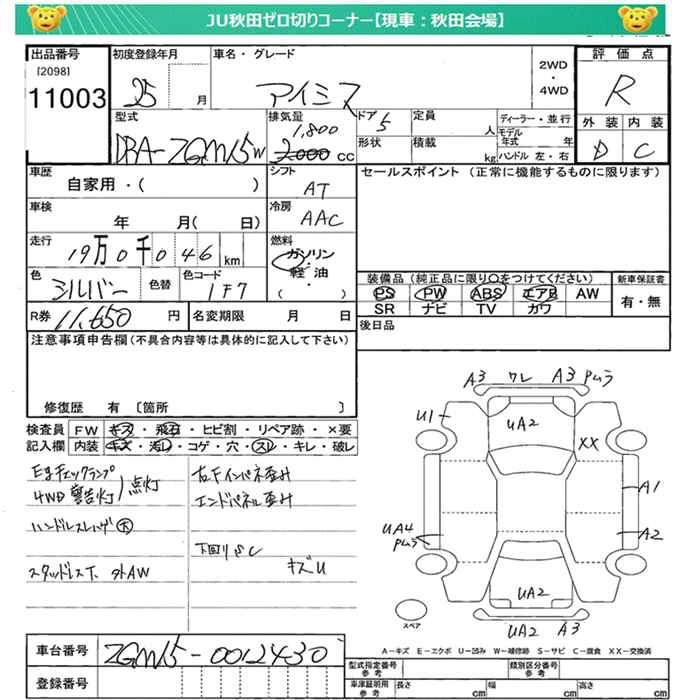 JU秋田ゼロ切りコーナー【現車：秋田会場】
出品番号
[2098]
11003
初度登録年月
25 月
車名・グレード
アイシス
2WD
・
4WD
評価点
R
外装 内装
D C
型式
DBA-ZGM15W
排気量
1,800
2,000 CC
ドア 5
定員 人
形状
積載 kg
ディーラー・並行
モデル年式 年
ハンドル 左・右
車歴
自家用・( )
シフト
AT
セールスポイント (正常に機能するものに限ります)
車検
年 月( 日)
冷房
AAC
走行
19万0千046km
燃料
ガソリン
・
軽・油
( )
色
シルバー
色替
色コード
1F7
装備品 (純正品に限り○をつけてください)
PS PW ABS エアB AW
SR ナビ TV カワ
新車保証書
有・無
R券 11,650 円
名変期限 月 日
後日品
注意事項申告欄(不具合内容等は具体的に記入して下さい)
修復歴 有 〔箇所 〕
検査員記入欄
FW キズ・飛石・ヒビ割・リペア跡・×要
内装 キズ・汚レ・コゲ・穴・スレ・キレ・破レ
E/gチェックランプ
4WD 警告灯 点灯
ハンドルスレハゲ大
スタッドレスT. 外AW
右Fインパネ歪み
エンドパネル歪み
下回りSC
キズU
A3 ワレ A3 Pムラ
U1
UA2
XX
A1
UA4
Pムラ
A2
UA2
スペア
UA2 A3
A－キズ E－エクボ U－凹み W－補修跡 S－サビ C－腐食 XX－交換済
車台番号
ZGM15-0012430
登録番号
型式指定番号
参考
類別区分番号
参考
車庫証明用
参考
長さ cm
幅 cm
高さ cm